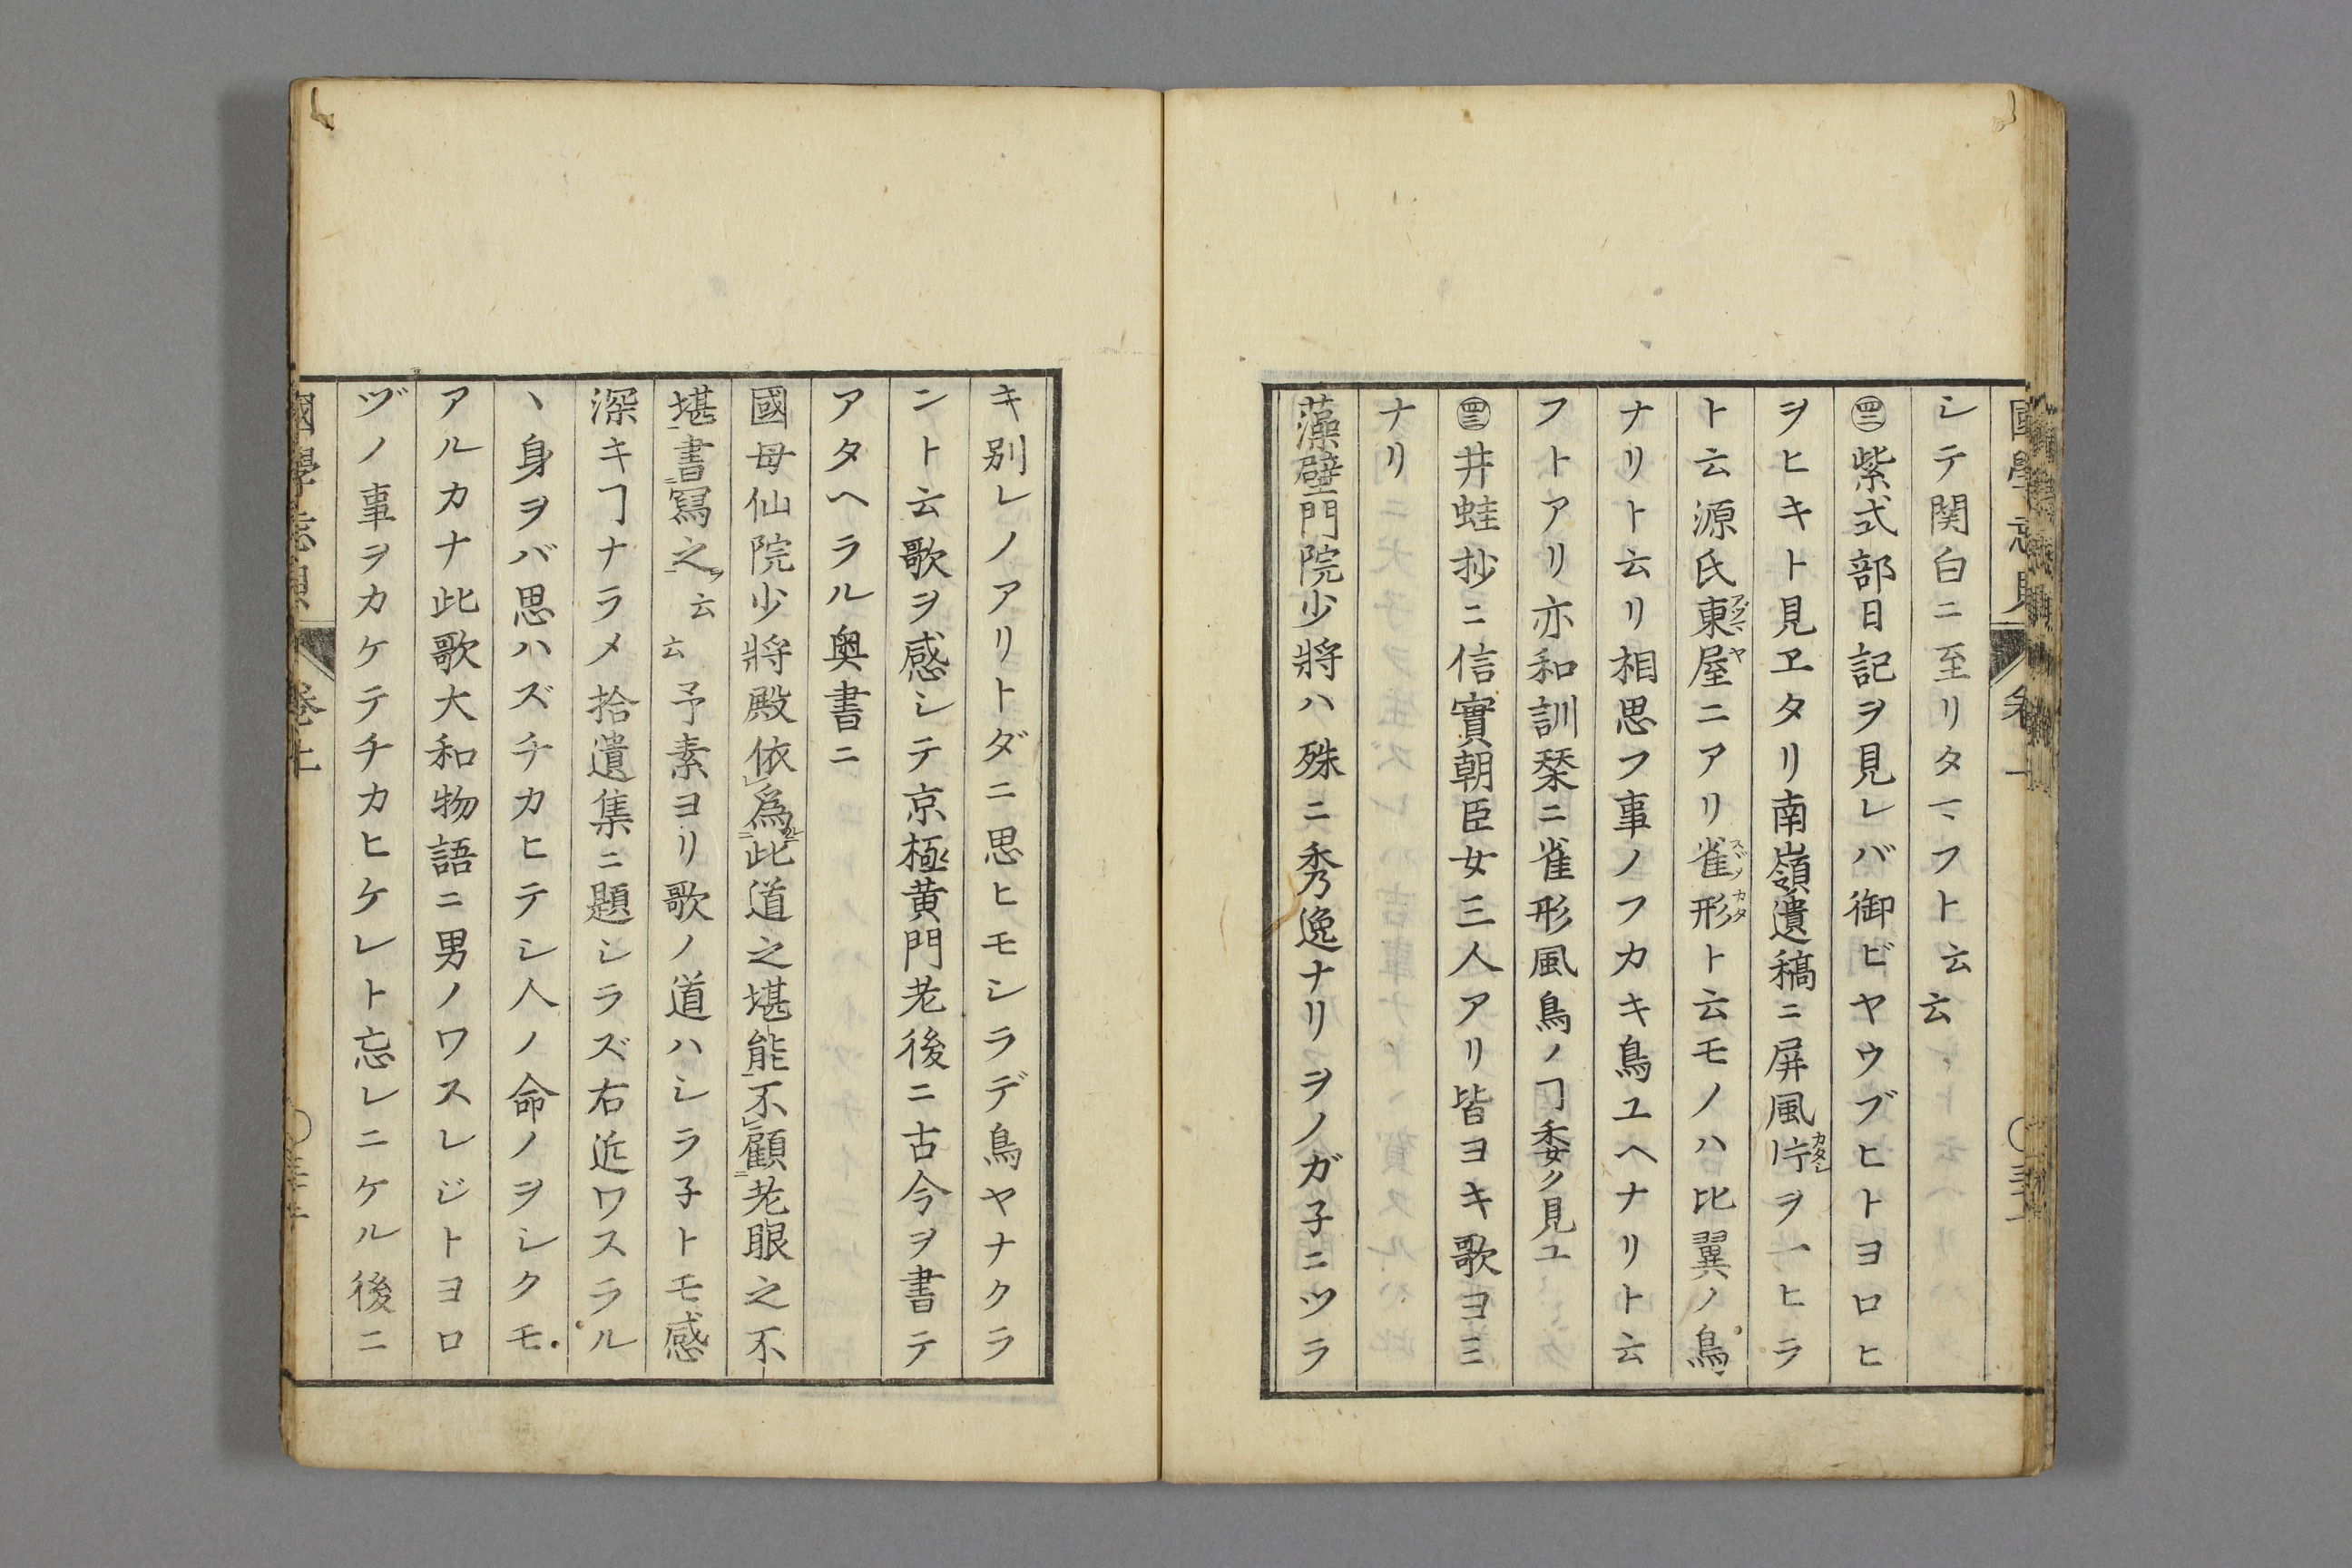 シテ関白ニ至リタマフト云云
㊷紫式部日記ヲ見レバ御ビヤウブヒトヨロヒ
ヲヒキト見ヱタリ南嶺遺稿ニ屏風片カタシヲ一ヒラ
ト云源氏東屋アヅマヤニアリ雀形スヾメノカタト云モノハ比翼ノ鳥
ナリト云リ相思フ事ノフカキ鳥ユヘナリト云
フトアリ亦和訓栞ニ雀形風鳥ノヿ委ク見ユ
㊸井蛙抄ニ信實朝臣女三人アリ皆ヨキ歌ヨミ
ナリ
藻壁門院少將ハ殊ニ秀逸ナリヲノガ子ニツラ
キ別レノアリトダニ思ヒモシラデ鳥ヤナクラ
ント云歌ヲ感シテ京極黄門老後ニ古今ヲ書テ
アタヘラル奥書ニ
國母仙院少將殿依爲此道之堪能不顧老眼之不
堪書冩之云云予素ヨリ歌ノ道ハシラ子トモ感
深キヿナラメ拾遺集ニ題シラズ右近ワスラル
ヽ身ヲバ思ハズチカヒテシ人ノ命ノヲシクモ
アルカナ此歌大和物語ニ男ノワスレジトヨロ
ヅノ事ヲカケテチカヒケレト忘レニケル後ニ